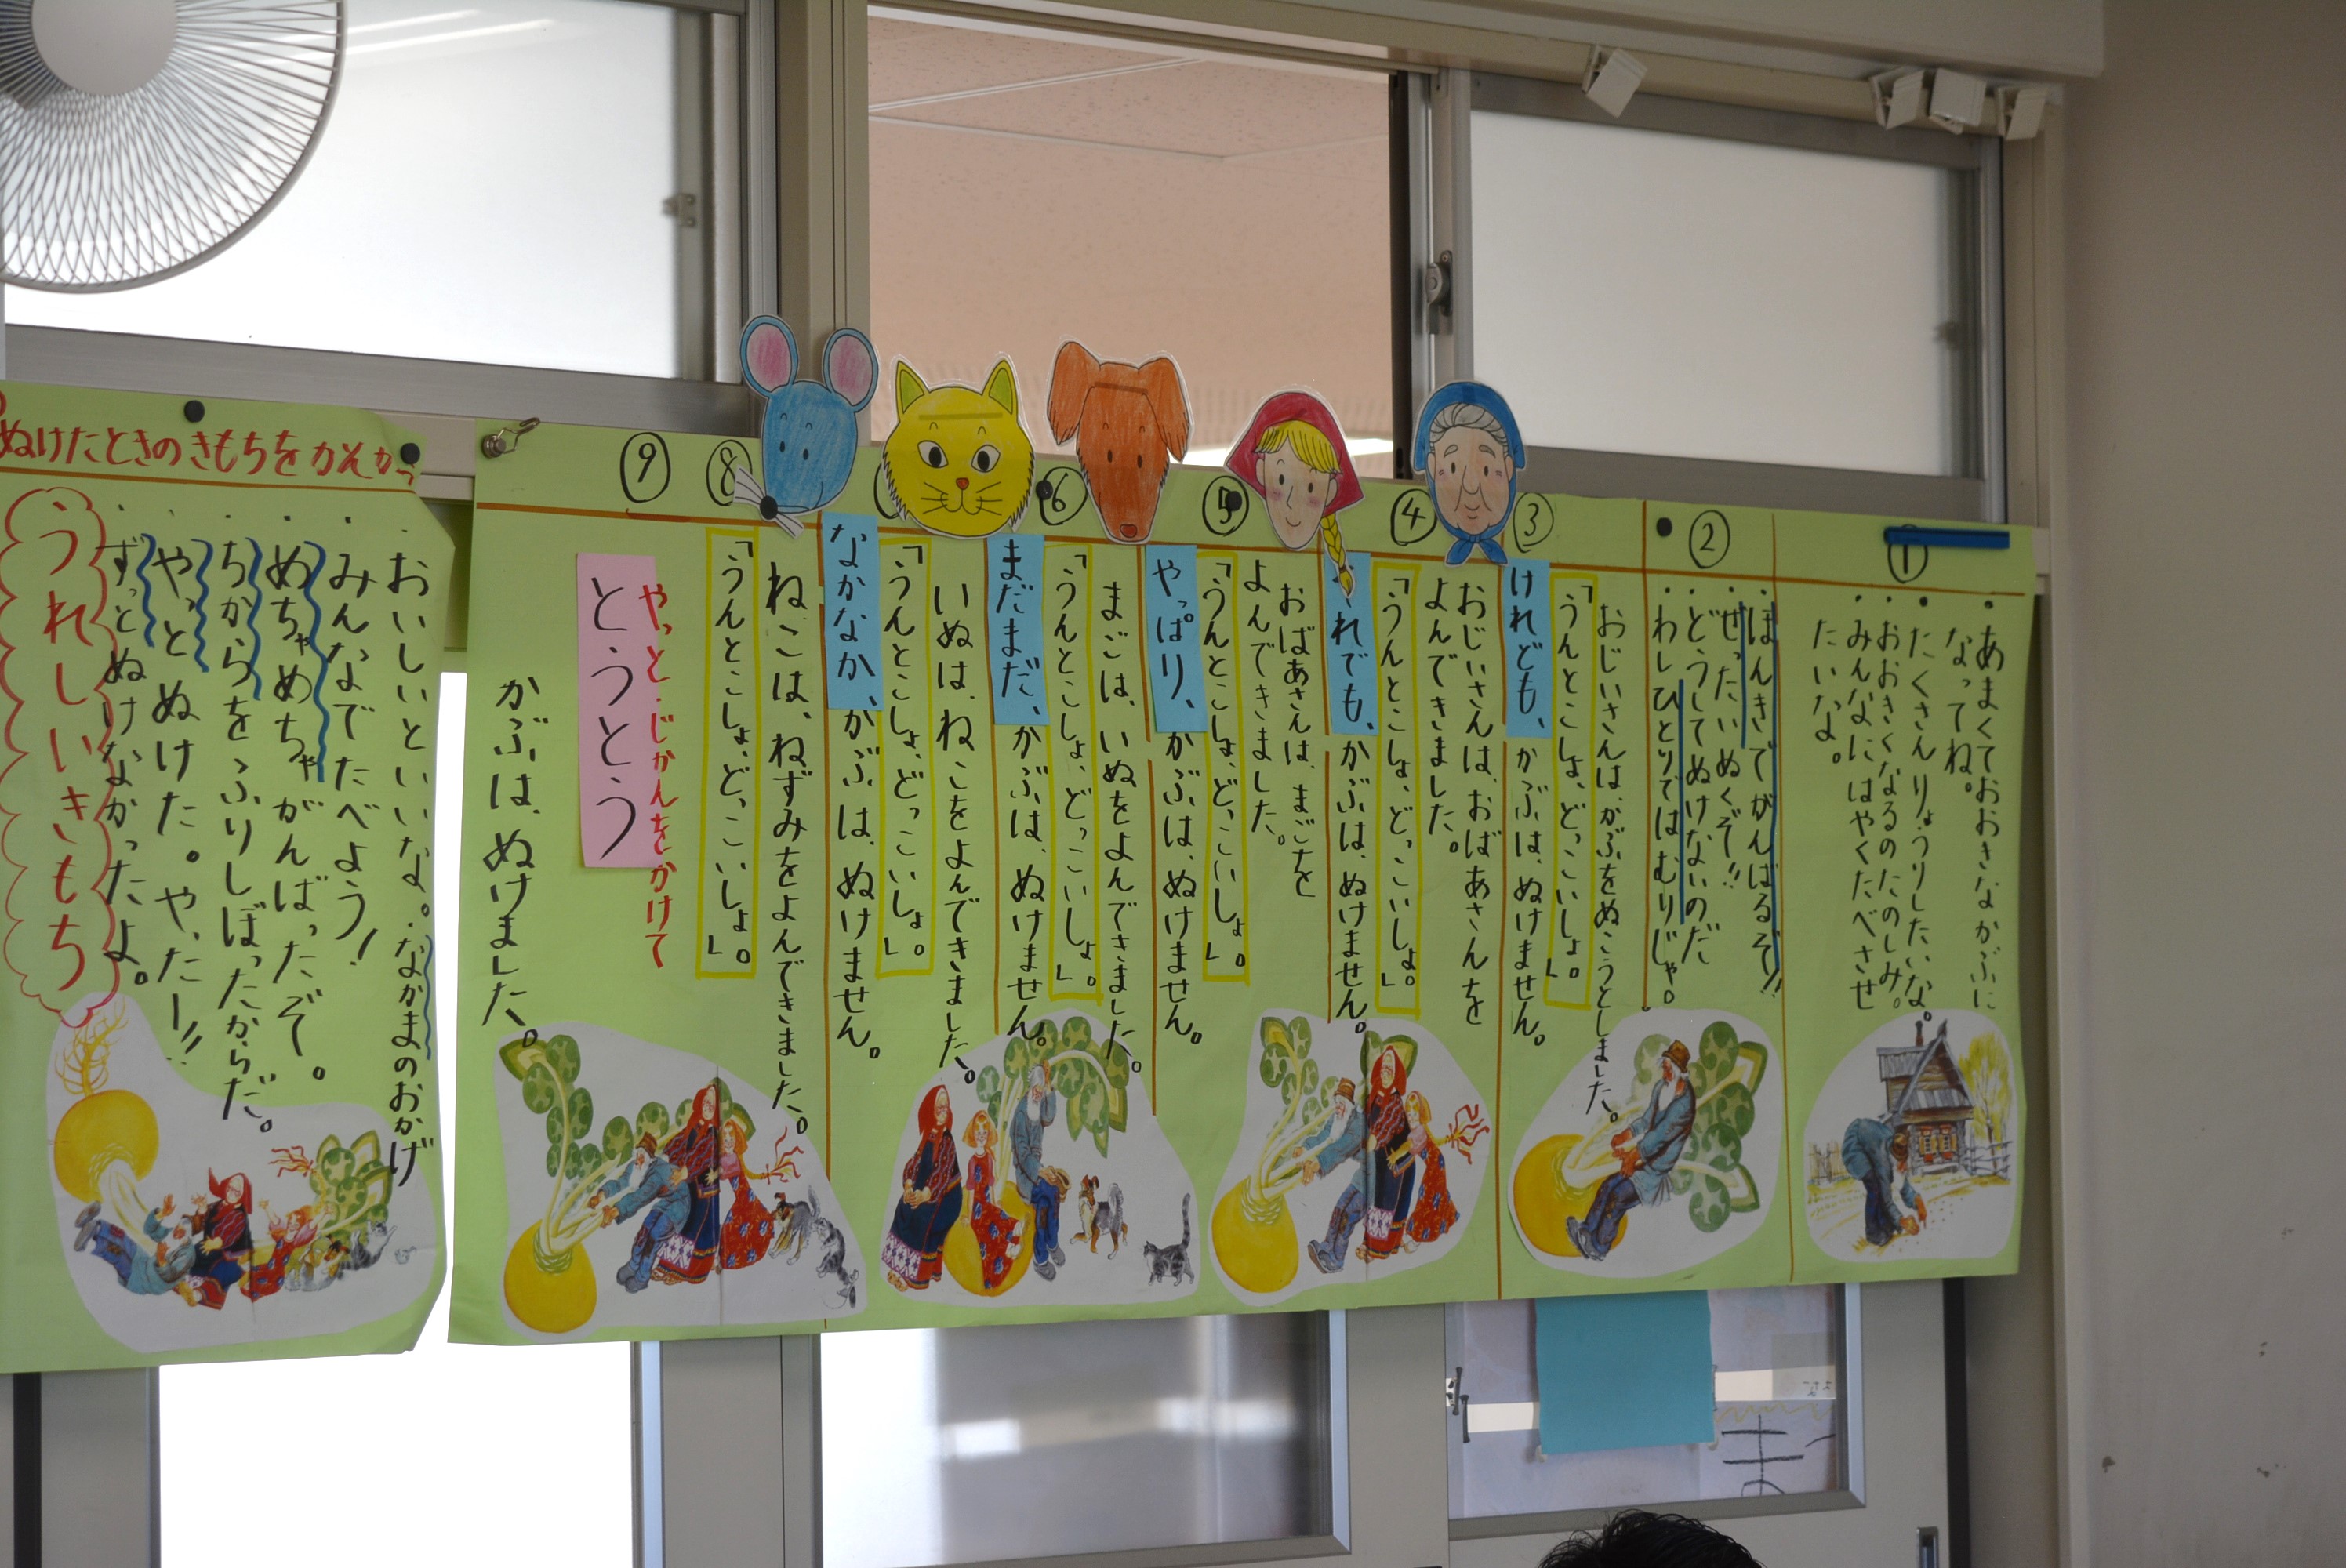 ①
・あまくておおきなかぶに
なってね。
・たくさんりょうりしたいな。
・おおきくなるのたのしみ。
・みんなにはやくたべさせ
たいな。
②
・ほんきでがんばるぞ!!
・ぜったいぬくぞ!!
・どうしてぬけないのだ
・わしひとりではむりじゃ。
③
おじいさんは、かぶをぬこうとしました。
「うんとこしょ、どっこいしょ。」
けれども、かぶは、ぬけません。
④
おじいさんは、おばあさんを
よんできました。
「うんとこしょ、どっこいしょ。」
れでも、かぶは、ぬけません。
⑤
おばあさんは、まごを
よんできました。
「うんとこしょ、どっこいしょ。」
やっぱり、かぶは、ぬけません。
⑥
まごは、いぬをよんできました。
「うんとこしょ、どっこいしょ。」
まだまだ、かぶは、ぬけません。
いぬは、ねこをよんできました。
「うんとこしょ、どっこいしょ。」
なかなか、かぶは、ぬけません。
⑧
ねこは、ねずみをよんできました。
「うんとこしょ、どっこいしょ。」
⑨
やっと・じかんをかけて
とうとう
かぶは、ぬけました。
ぬけたときのきもちをかんがえ
・おいしいといいな。・なかまのおかげ
・みんなでたべよう!
・めちゃめちゃがんばったぞ。
・ちからをふりしぼったからだ。
・やっとぬけた。やったー!!
・ずっとぬけなかったよ。
うれしいきもち